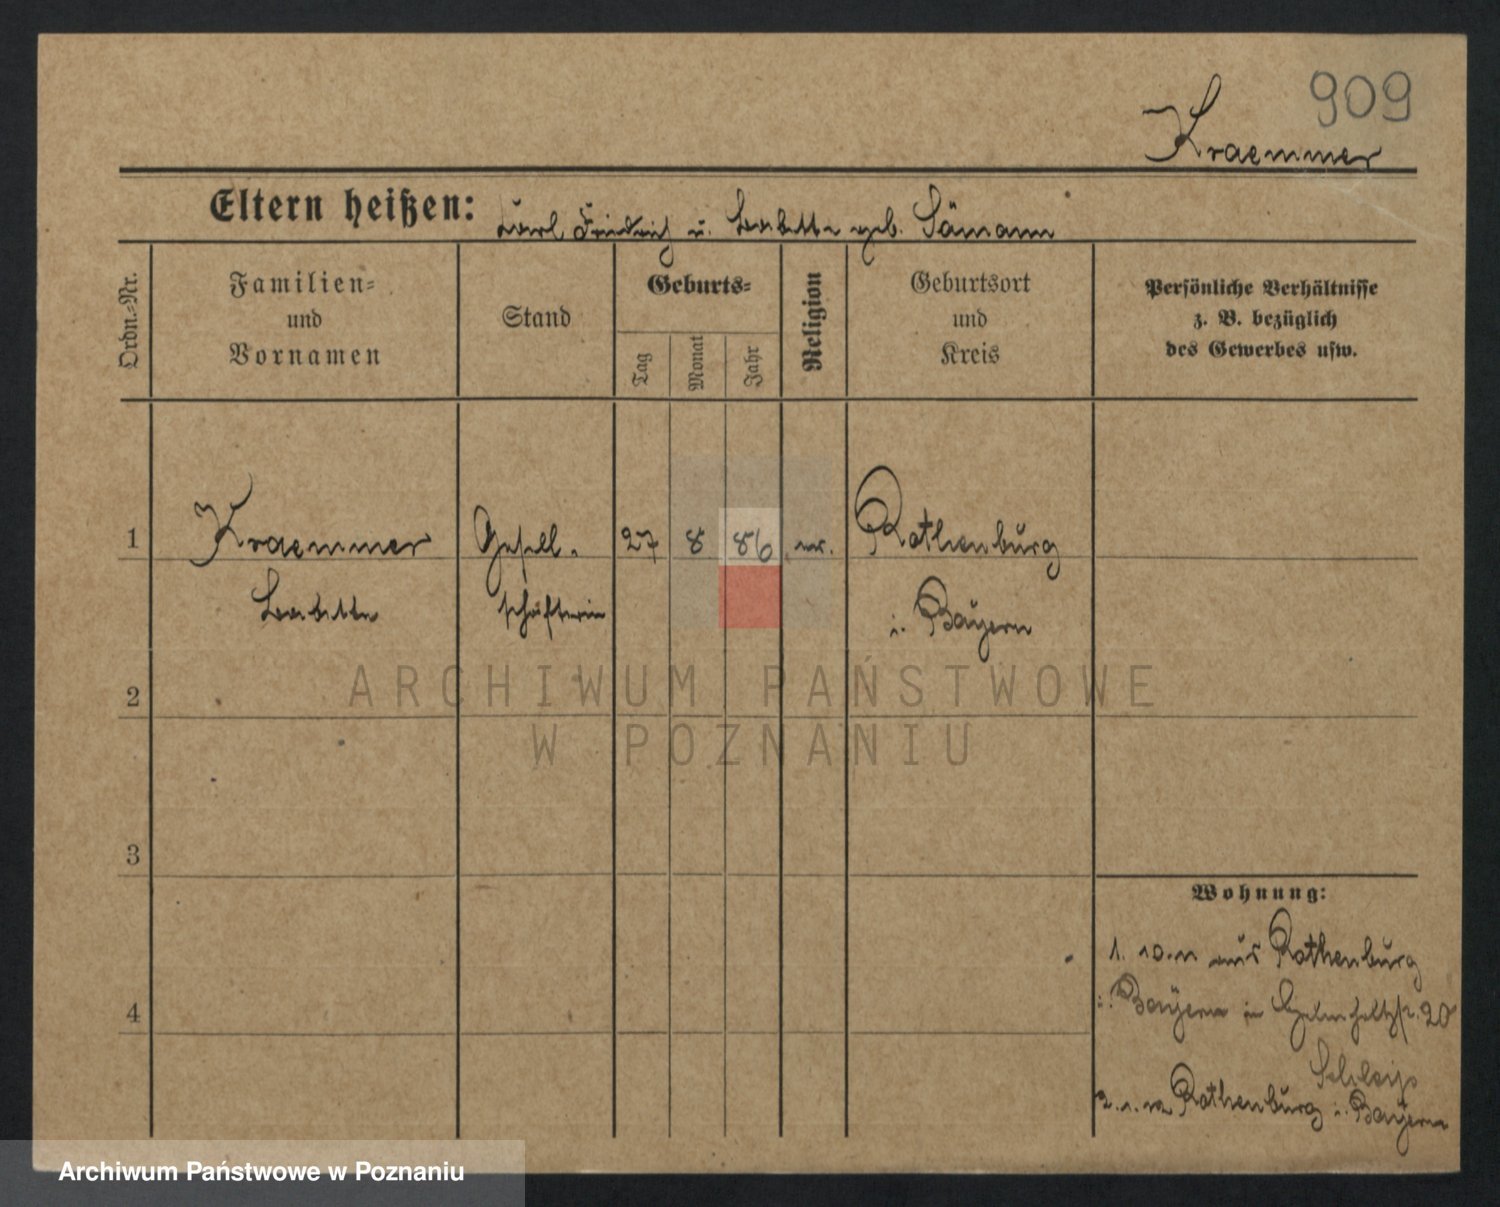 909
Kraemmer
Eltern heißen: Karl Friedrich u. Babette geb. Sämann
Ordn.-Nr.
Familien-
und
Vornamen
Stand
Geburts-
Tag
Monat
Jahr
Religion
Geburtsort
und
Kreis
Persönliche Verhältnisse
z. B. bezüglich
des Gewerbes usw.
1 Kraemmer Gesell- 27 8 86 Rothenburg
Babette schafterin i. Bayern
2
3
4
Wohnung:
1. 10. 11 aus Rothenburg
i. Bayern in 20
2. 1. 12 Rothenburg i. Bayern
ARCHIWUM PAŃSTWOWE
W POZNANIU
Archiwum Państwowe w Poznaniu